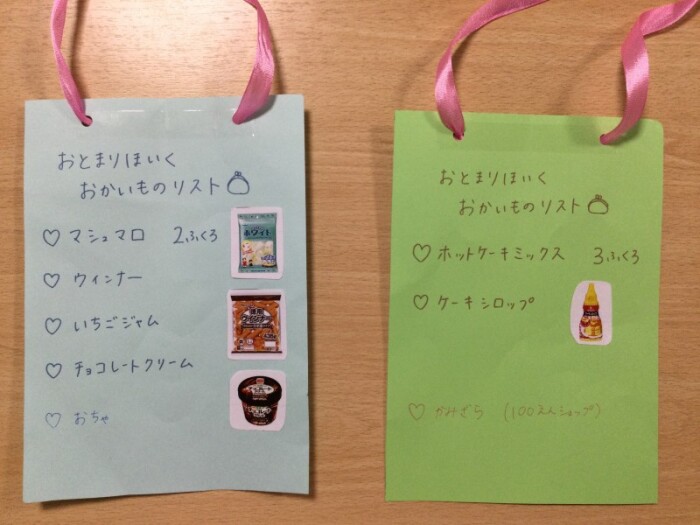 おとまりほいく
おかいものリスト
♡ マシュマロ 2ふくろ
♡ ウィンナー
♡ いちごジャム
♡ チョコレートクリーム
♡ おちゃ
ホワイト
ウインナー
おとまりほいく
おかいものリスト
♡ ホットケーキミックス 3ふくろ
♡ ケーキシロップ
♡ かみざら (100えんショップ)